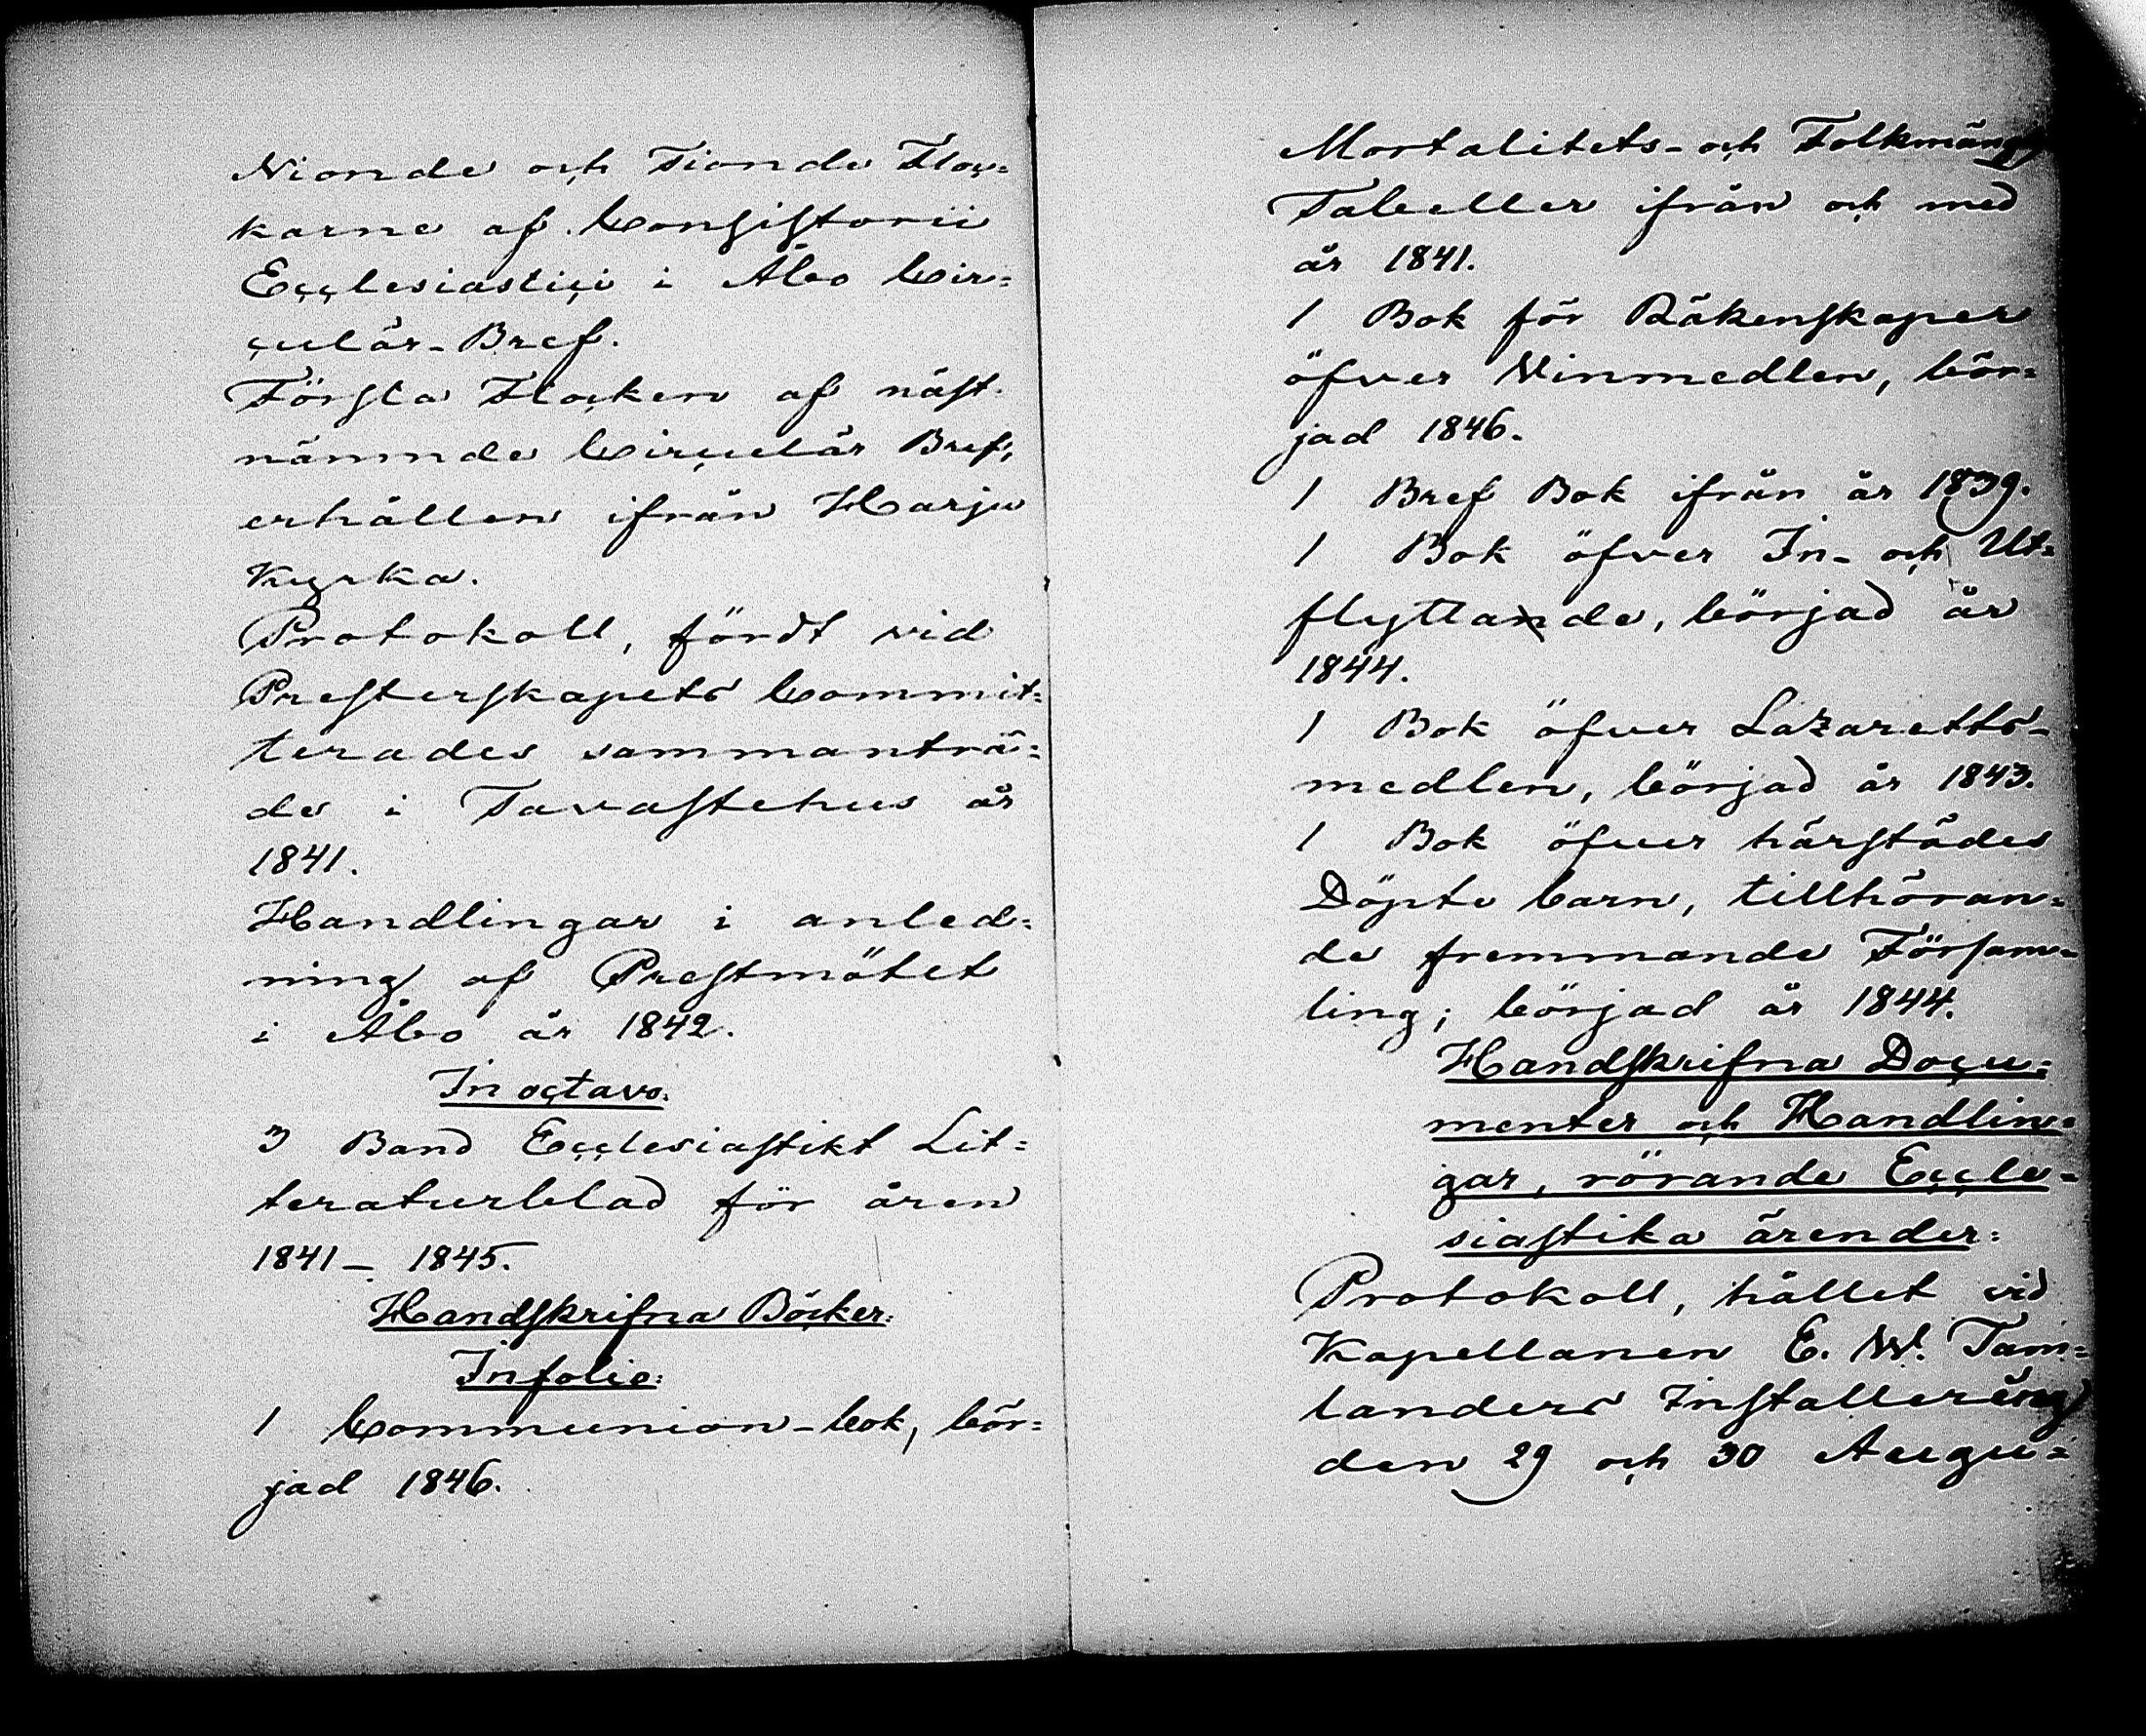 Nionde och Tionde Floc=
karne af Consistorii
Ecclesiastici i Åbo Cir=
culär-Bref.
Första Flocken af näst-
nämnde Circulär Bref,
erhållen ifrån Harju
Kyrka.
Protokoll, fördt vid
Presterskapets Commit=
terades sammanträ=
de i Tavastehus år
1841.
Handlingar i anled=
ning af Prestmötet
i Åbo år 1842.
In octavo:
3 Band Ecclesiastikt Lit=
teraturblad för åren
1841 - 1845.
Handskrifna Böcker:
In folio:
1 Communion-bok, bör=
jad 1846.
Mortalitets- och Folkmängs
Tabeller ifrån och med
år 1841.
1 Bok för Räkenskaper
öfver Vinmedlen, bör=
jad 1846.
1 Bref Bok ifrån år 1839.
1 Bok öfver In- och Ut=
flyttande, börjad år
1844.
1 Bok öfver Lazaretts-
medlen, börjad år 1843.
1 Bok öfver härstädes
Döpte barn, tillhöran=
de fremmande Försam=
ling; börjad år 1844.
Handskrifna Docu=
menter och Handlin=
gar, rörande Eccle=
siastika ärender:
Protokoll, hållet vid
Kapellanen E. W. Tam=
landers Installering
den 29 och 30 Augu=